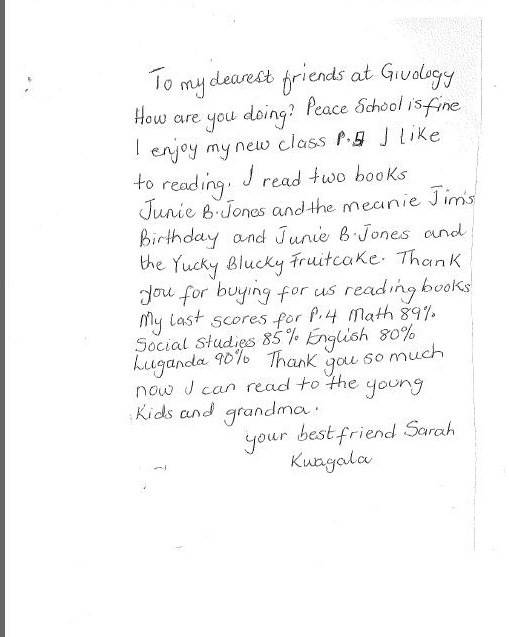 To my dearest friends at Givology
How are you doing? Peace School is fine
I enjoy my new class P.5 I like
to reading. I read two books
Junie B. Jones and the meanie Jim's
Birthday and Junie B. Jones and
the Yucky Blucky Fruitcake. Thank
you for buying for us reading books
My last scores for P.4 Math 89%
Social Studies 85% English 80%
Luganda 90% Thank you so much
now I can read to the young
Kids and grandma.
your best friend Sarah
Kwagala